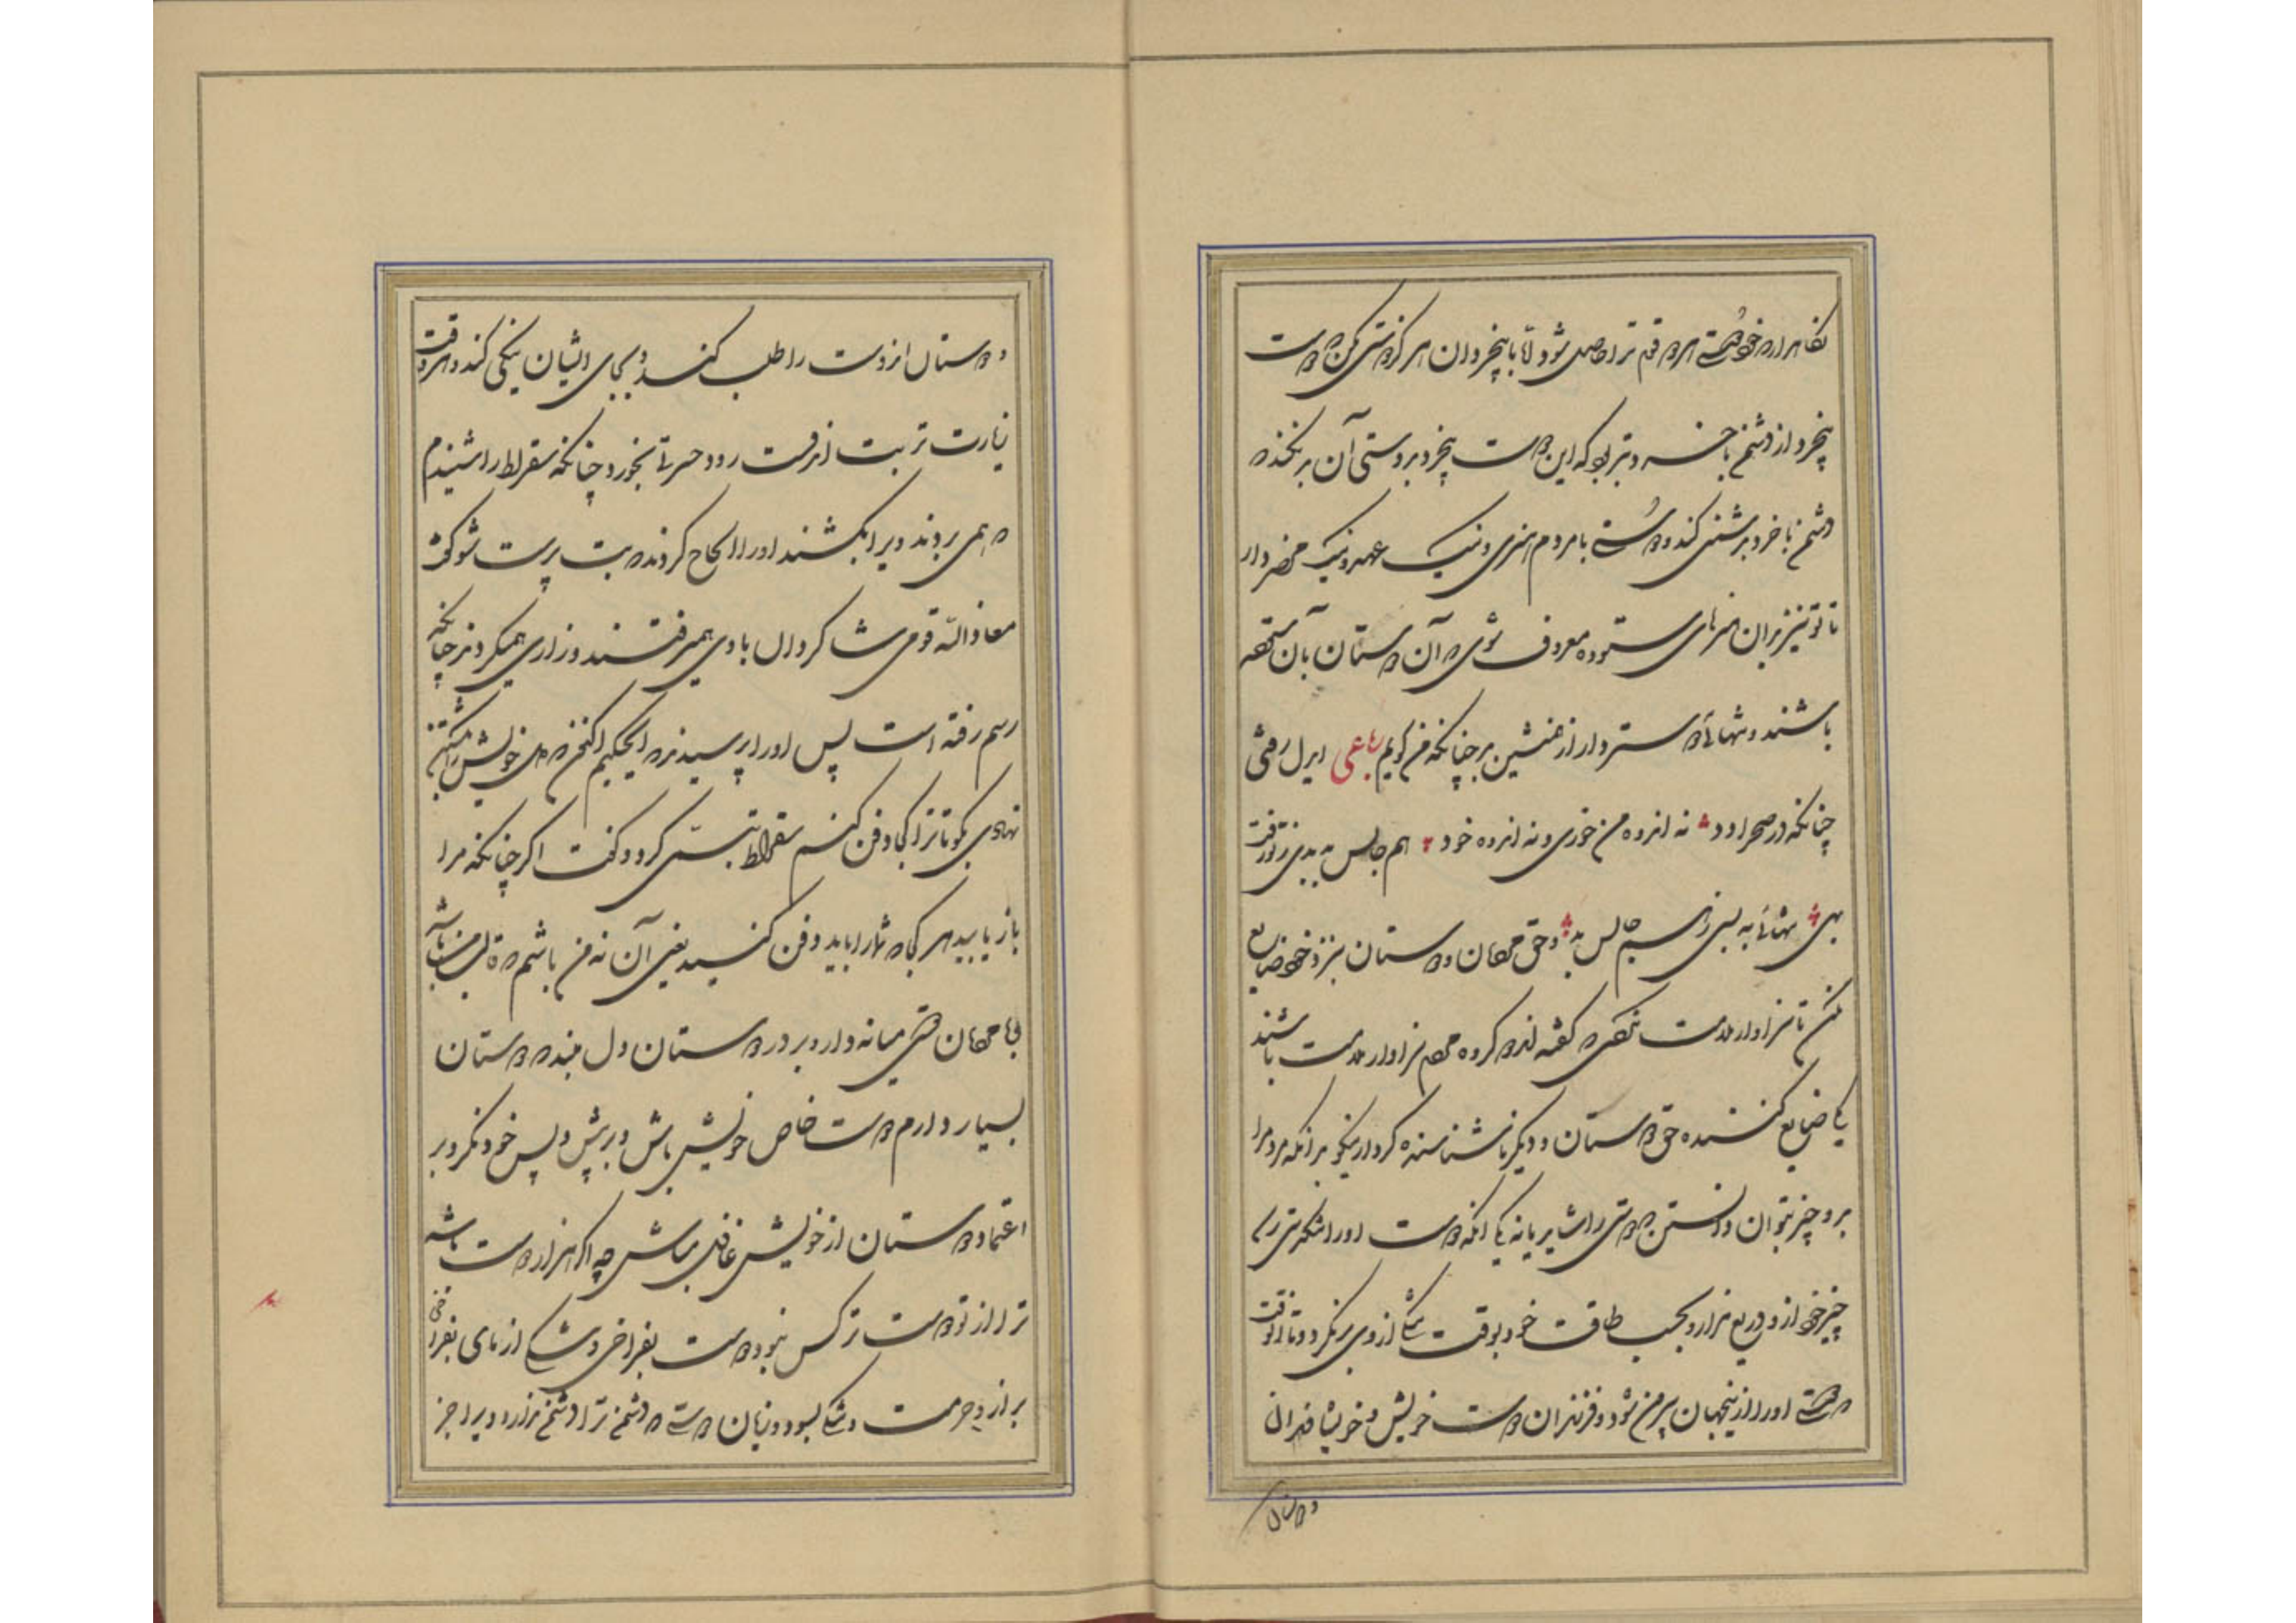 نگاهدار دوستی هر دو قوم ترا حاصل شود و لا با بیخردان هرگز دوستی مکن که دوست
بیخرد از دشمن با خرد بتر بود که این دوست بیخرد بدوستی آن بد کند که
دشمن با خرد بدشمنی کند و دوستی با مردم هنری و نیک عهد و نیک محضر دار
تا تو نیز بدان هنرهای ستوده معروف شوی که آن دوستان بآن ستوده
باشند و تنهائی دوستر دار از همنشین بد چنانکه من گویم رباعی ایدل رفتی
چنانکه در صحرا دد نه انده من خوری و نه انده خود هم جالس بد بدی تو رفت
بهی تنهائی به بسی ز هم جالس بد و حق مردمان و دوستان بنزد خود ضایع
مکن تا سزاوار ملامت نگردی که گفته اند دو گروه مردم سزاوار ملامت باشند
یکی ضایع کننده حق دوستان و دیگر ناشناسنده کردار نیکو بدانکه مردم را
بدو چیز بتوان دانستن که دوستی را شاید یا نه یکی آنکه دوست او را تنگدستی رسد
چیز خود ازو دریغ ندارد بحسب طاقت خود و بوقت تنگی از وی برنگردد تا آنوقت
که دوستی او از اینجهان بیرون شود و فرزندان دوست خویش و خویشاوندان
دوستان
دوستان آن دوست را طلب کند و بجای ایشان نیکی کند و هر وقت
زیارت تربت آندوست رود و حسرتی بخورد چنانکه سقراط را شنیدم
که همی بردند ویرا بکشند او را الحاح کردند که بت پرست شو گفت
معاذ الله قومی شاگردان با وی همیرفتند و زاری همیکردند چنانکه
رسم رفته است پس او را پرسیدند که ایحکیم اکنون که دل خویش بر کشتن
نهادی بگو تا ترا کجا دفن کنیم سقراط تبسمی کرد و گفت اگر چنانکه مرا
باز یابید هر کجا که شما را باید دفن کنید یعنی آن نه من باشم که قالب من باشد
با مردمان دوستی میانه دار و بر دوستان دل مبند که دوستان
بسیار دارم دوست خاص خویش باش و از پیش و پس خود نگر و بر
اعتماد دوستان از خویش غافل مباش چه اگر هزار دوست باشد
ترا از تو دوست تر کس نبود و دوست بفراخی و تنگی آزمای بفراخی
بر آزرم حرمت و بتنگی بسود و زیان و دوستی که دشمن ترا دشمن ندارد ویرا جز